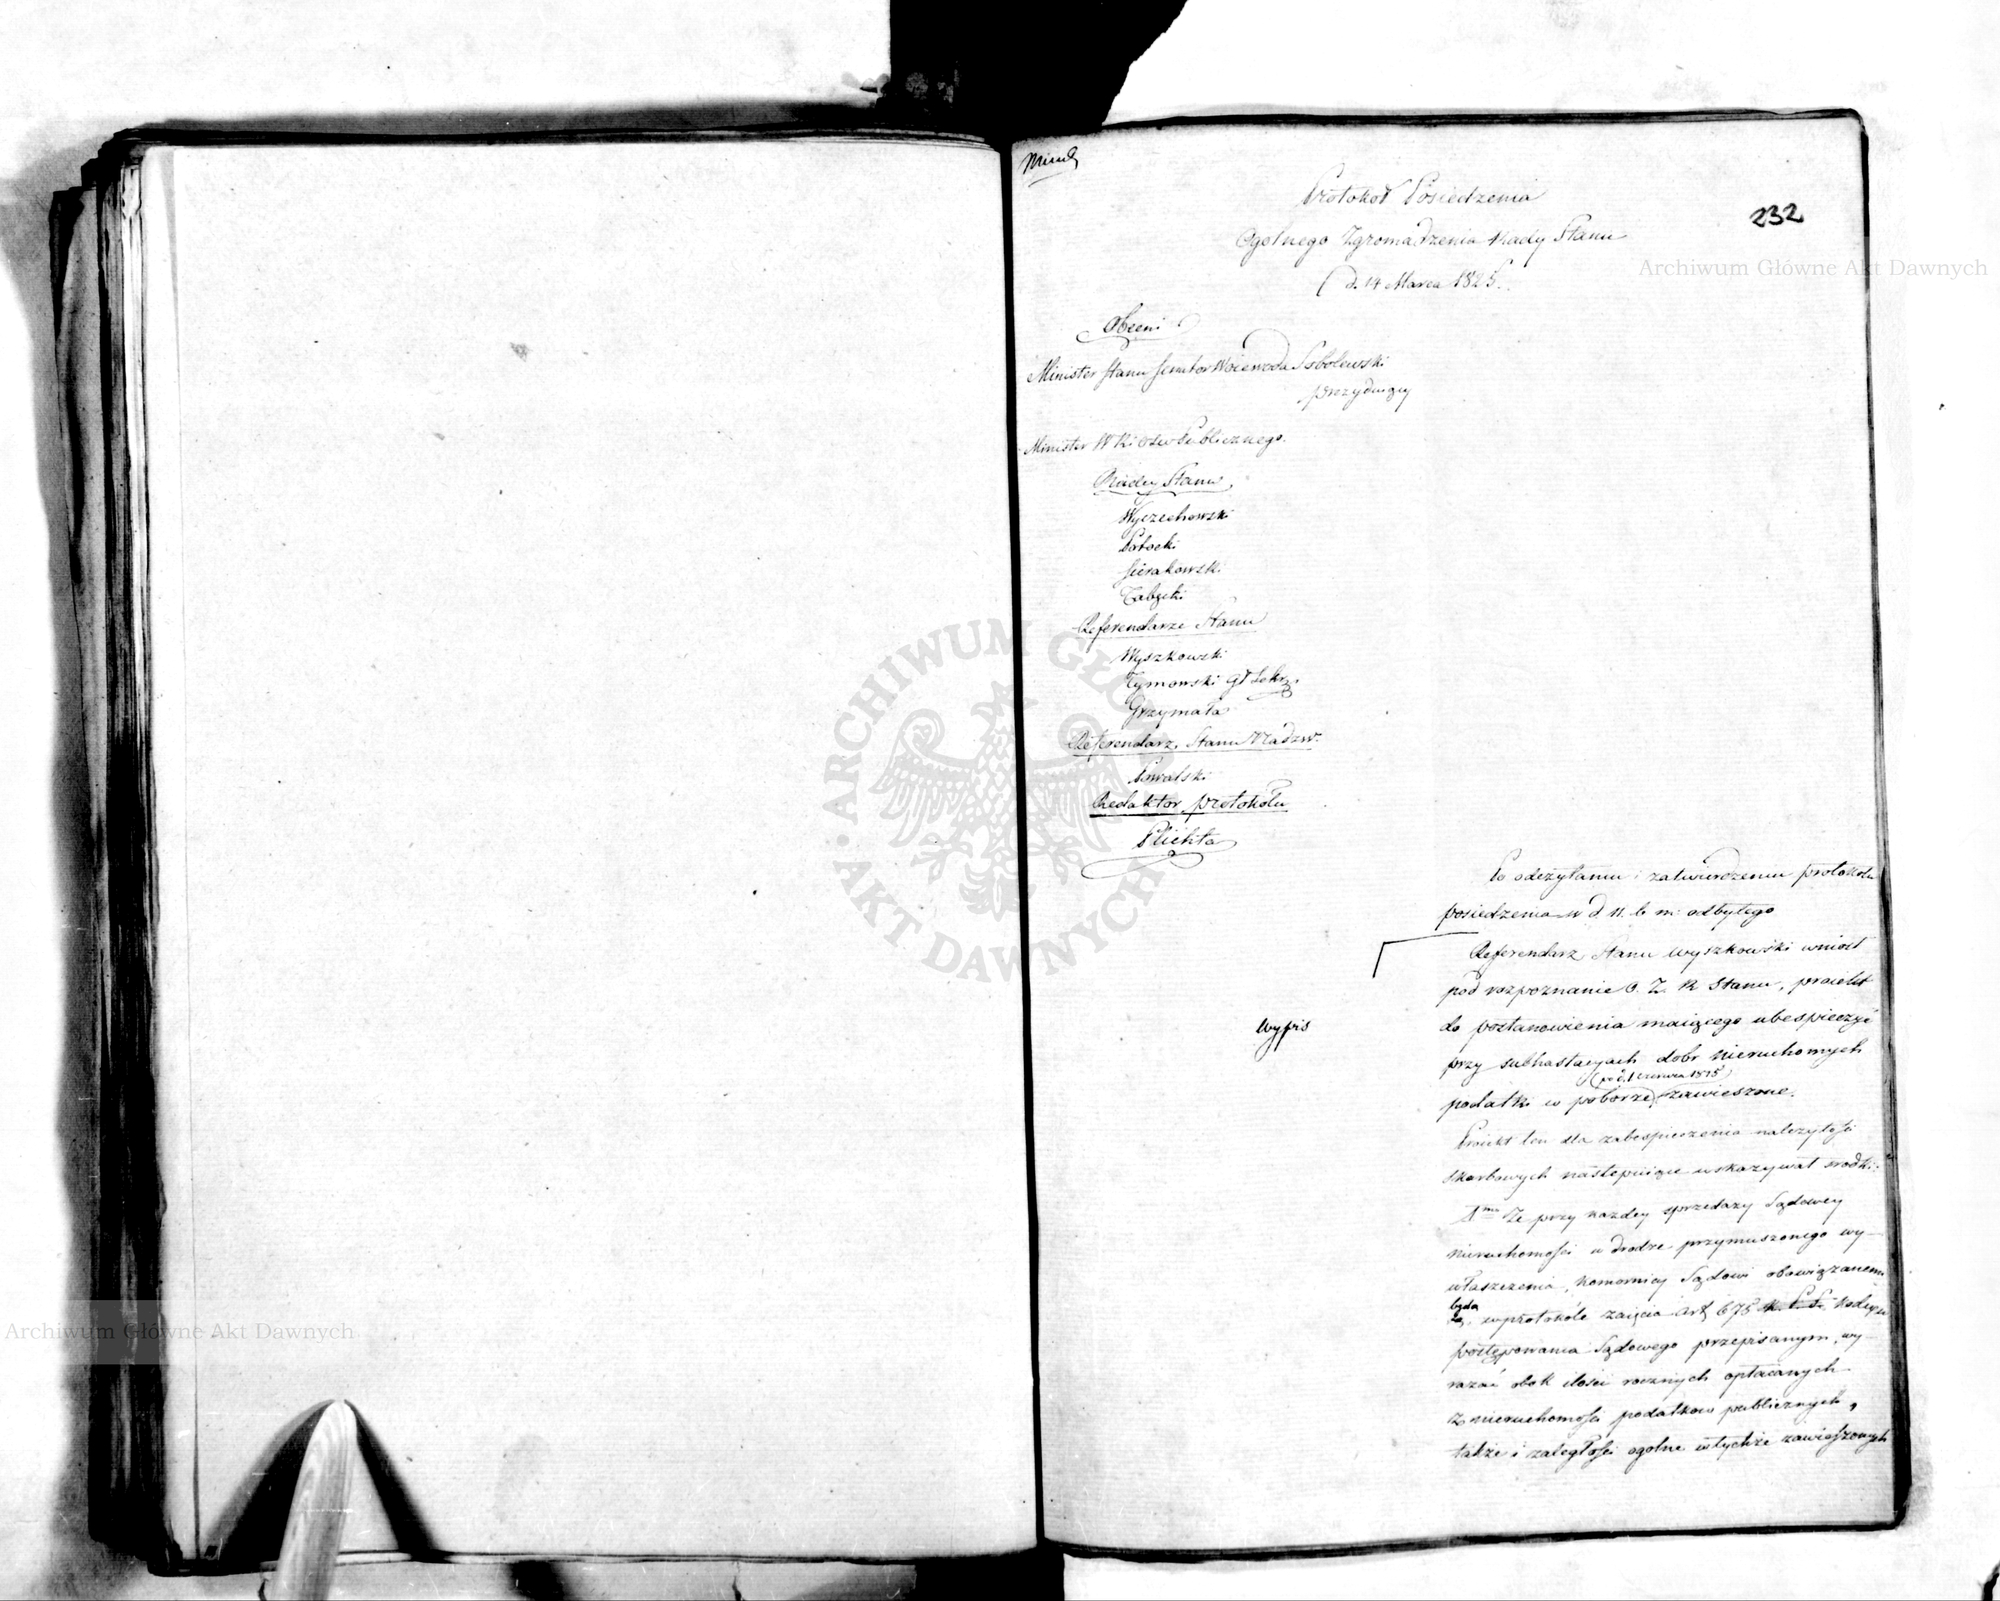 232
Protokół Posiedzenia
Ogolnego Zgromadzenia Rady Stanu
d. 14 Marca 1825.
Obecni
Minister Stanu Senator Woiewoda Sobolewski
prezyduiący
Minister W R i Ośw Publicznego.
Radcy Stanu
Wyczechowski
Potocki
Sierakowski
Referendarze Stanu
Wyszkowski
Tymowski Gł Sekr.
Grzymała
Referendarz Stanu Nadzw.
Kowalski
Redaktor protokołu
Plichta
Po odczytaniu i zatwierdzeniu protokołu
posiedzenia w d. 11. b. m. odbytego
Referendarz Stanu Wyszkowski wniosł
pod rozpoznanie O. Z. R. Stanu, proiekt
Wypis
do postanowienia maiącego ubespieczyć
przy subhastacyach dobr nieruchomych
(po d. 1 Czerwca 1815)
podatki w poborze zawieszone.
Proiekt ten dla zabespieczenia należytości
skarbowych następuiące wskazywał srodki:
1mo Że przy każdey sprzedaży Sądowey
nieruchomości w drodze przymuszonego wy-
właszczenia, komornicy Sądowi obowiązanemi
będą
w protokole zaięcia art 675 K. P. S. kodexu
postępowania Sądowego przepisanym, wy-
razać obok ilości rocznych opłacanych
z nieruchomości podatkow publicznych,
także i zaległości ogolne w tychże zawieszonych
ARCHIWUM GŁÓWNE AKT DAWNYCH
Archiwum Główne Akt Dawnych
Archiwum Główne Akt Dawnych